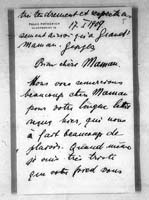 tendrement et
17. I 1905
sement ainsi qu'à Grand'
Maman. Georges
Bien chère Maman,
Nous vous remercions
beaucoup chère Maman
pour votre longue lettre
reçue hier, qui nous
a fait beaucoup de
plaisir. Quand même
je suis très triste
que votre pied vous